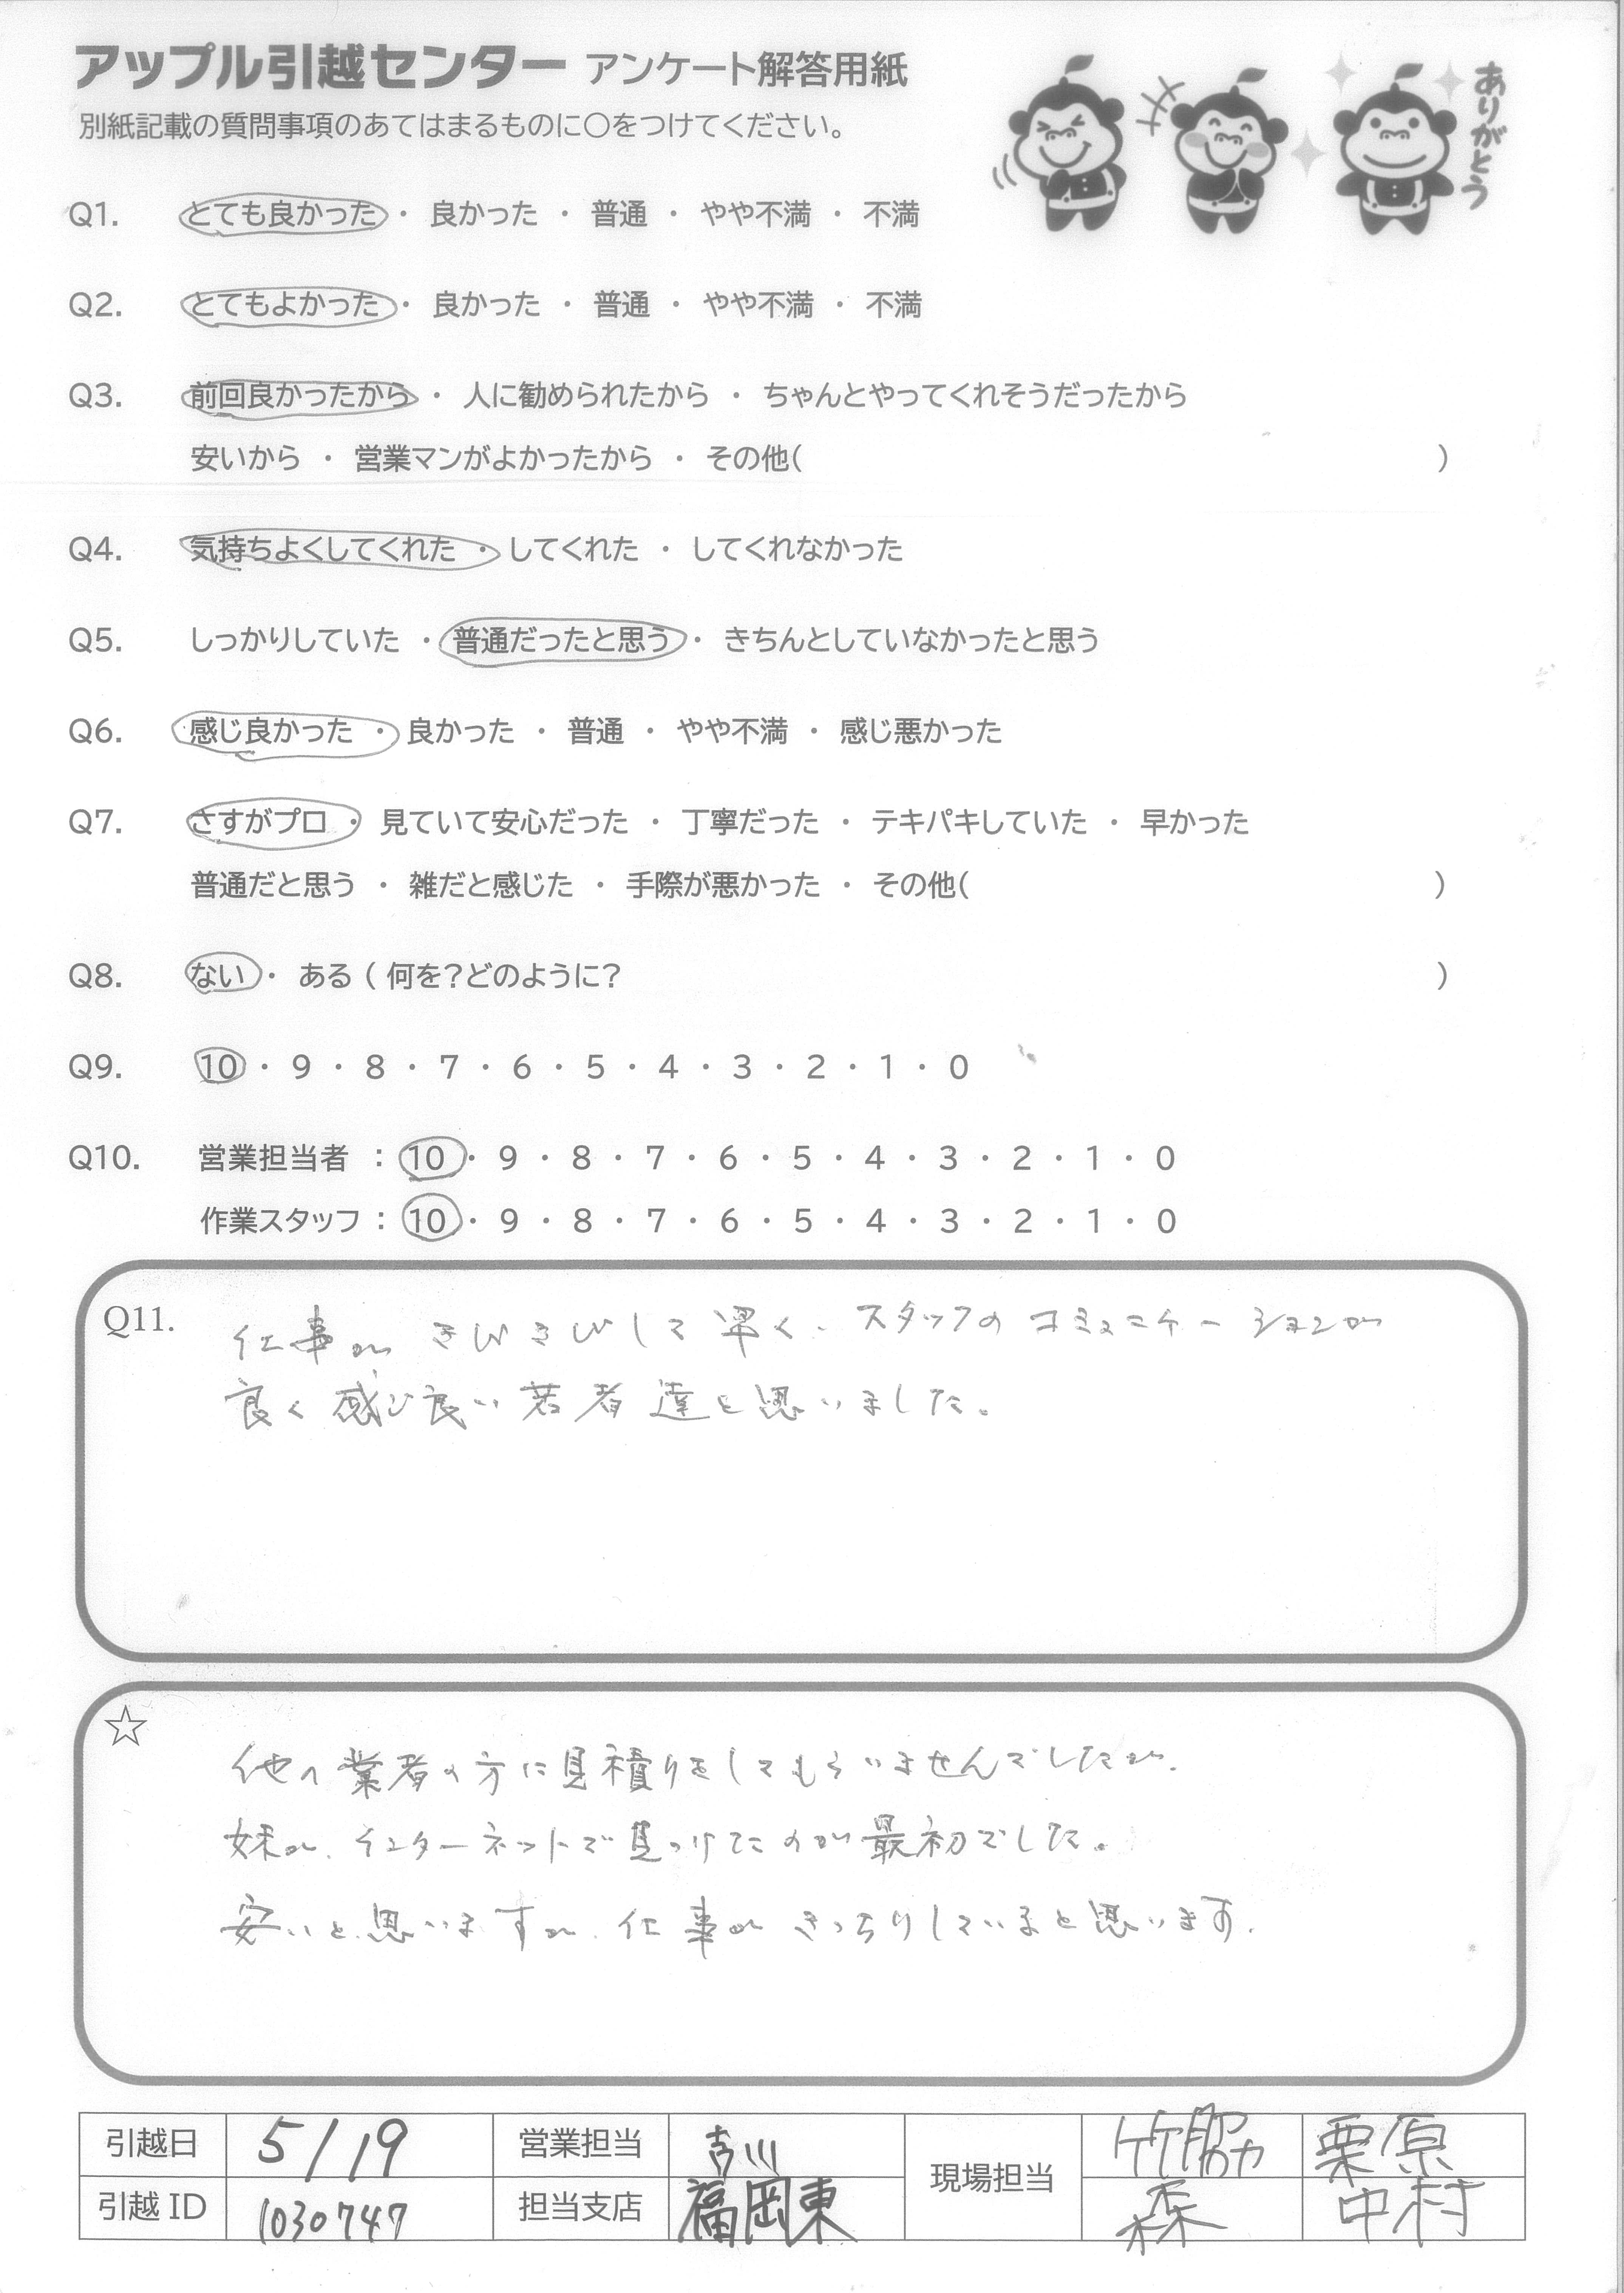 アップル引越センター アンケート解答用紙
別紙記載の質問事項のあてはまるものに○をつけてください。
ありがとう
Q1. とても良かった ・ 良かった ・ 普通 ・ やや不満 ・ 不満
Q2. とてもよかった ・ 良かった ・ 普通 ・ やや不満 ・ 不満
Q3. 前回良かったから ・ 人に勧められたから ・ ちゃんとやってくれそうだったから
安いから ・ 営業マンがよかったから ・ その他( )
Q4. 気持ちよくしてくれた ・ してくれた ・ してくれなかった
Q5. しっかりしていた ・ 普通だったと思う ・ きちんとしていなかったと思う
Q6. 感じ良かった ・ 良かった ・ 普通 ・ やや不満 ・ 感じ悪かった
Q7. さすがプロ ・ 見ていて安心だった ・ 丁寧だった ・ テキパキしていた ・ 早かった
普通だと思う ・ 雑だと感じた ・ 手際が悪かった ・ その他( )
Q8. ない ・ ある ( 何を?どのように? )
Q9. 10 ・ 9 ・ 8 ・ 7 ・ 6 ・ 5 ・ 4 ・ 3 ・ 2 ・ 1 ・ 0
Q10. 営業担当者 : 10 ・ 9 ・ 8 ・ 7 ・ 6 ・ 5 ・ 4 ・ 3 ・ 2 ・ 1 ・ 0
作業スタッフ : 10 ・ 9 ・ 8 ・ 7 ・ 6 ・ 5 ・ 4 ・ 3 ・ 2 ・ 1 ・ 0
Q11. 仕事が きびきびして 早く、スタッフの コミュニケーションが
良く 感じ良い 若者達と思いました。
☆ 他の業者の方に見積りをしてもらいませんでしたが、
妹が、インターネットで見つけたのが最初でした。
安いと思いますが、仕事が きっちりしていると思います。
引越日 5/19 営業担当 吉川 現場担当 竹脇 栗原
引越ID 1030747 担当支店 福岡東 森 中村